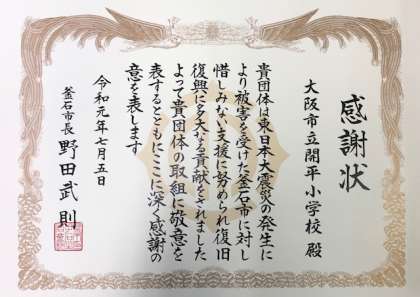 感謝状
大阪市立開平小学校 殿
貴団体は東日本大震災の発生に
より被害を受けた釜石市に対し
惜しみない支援に努められ復旧
復興に多大なる貢献をされました
よって貴団体の取組に敬意を
表するとともにここに深く感謝の
意を表します
令和元年七月五日
釜石市長 野田武則